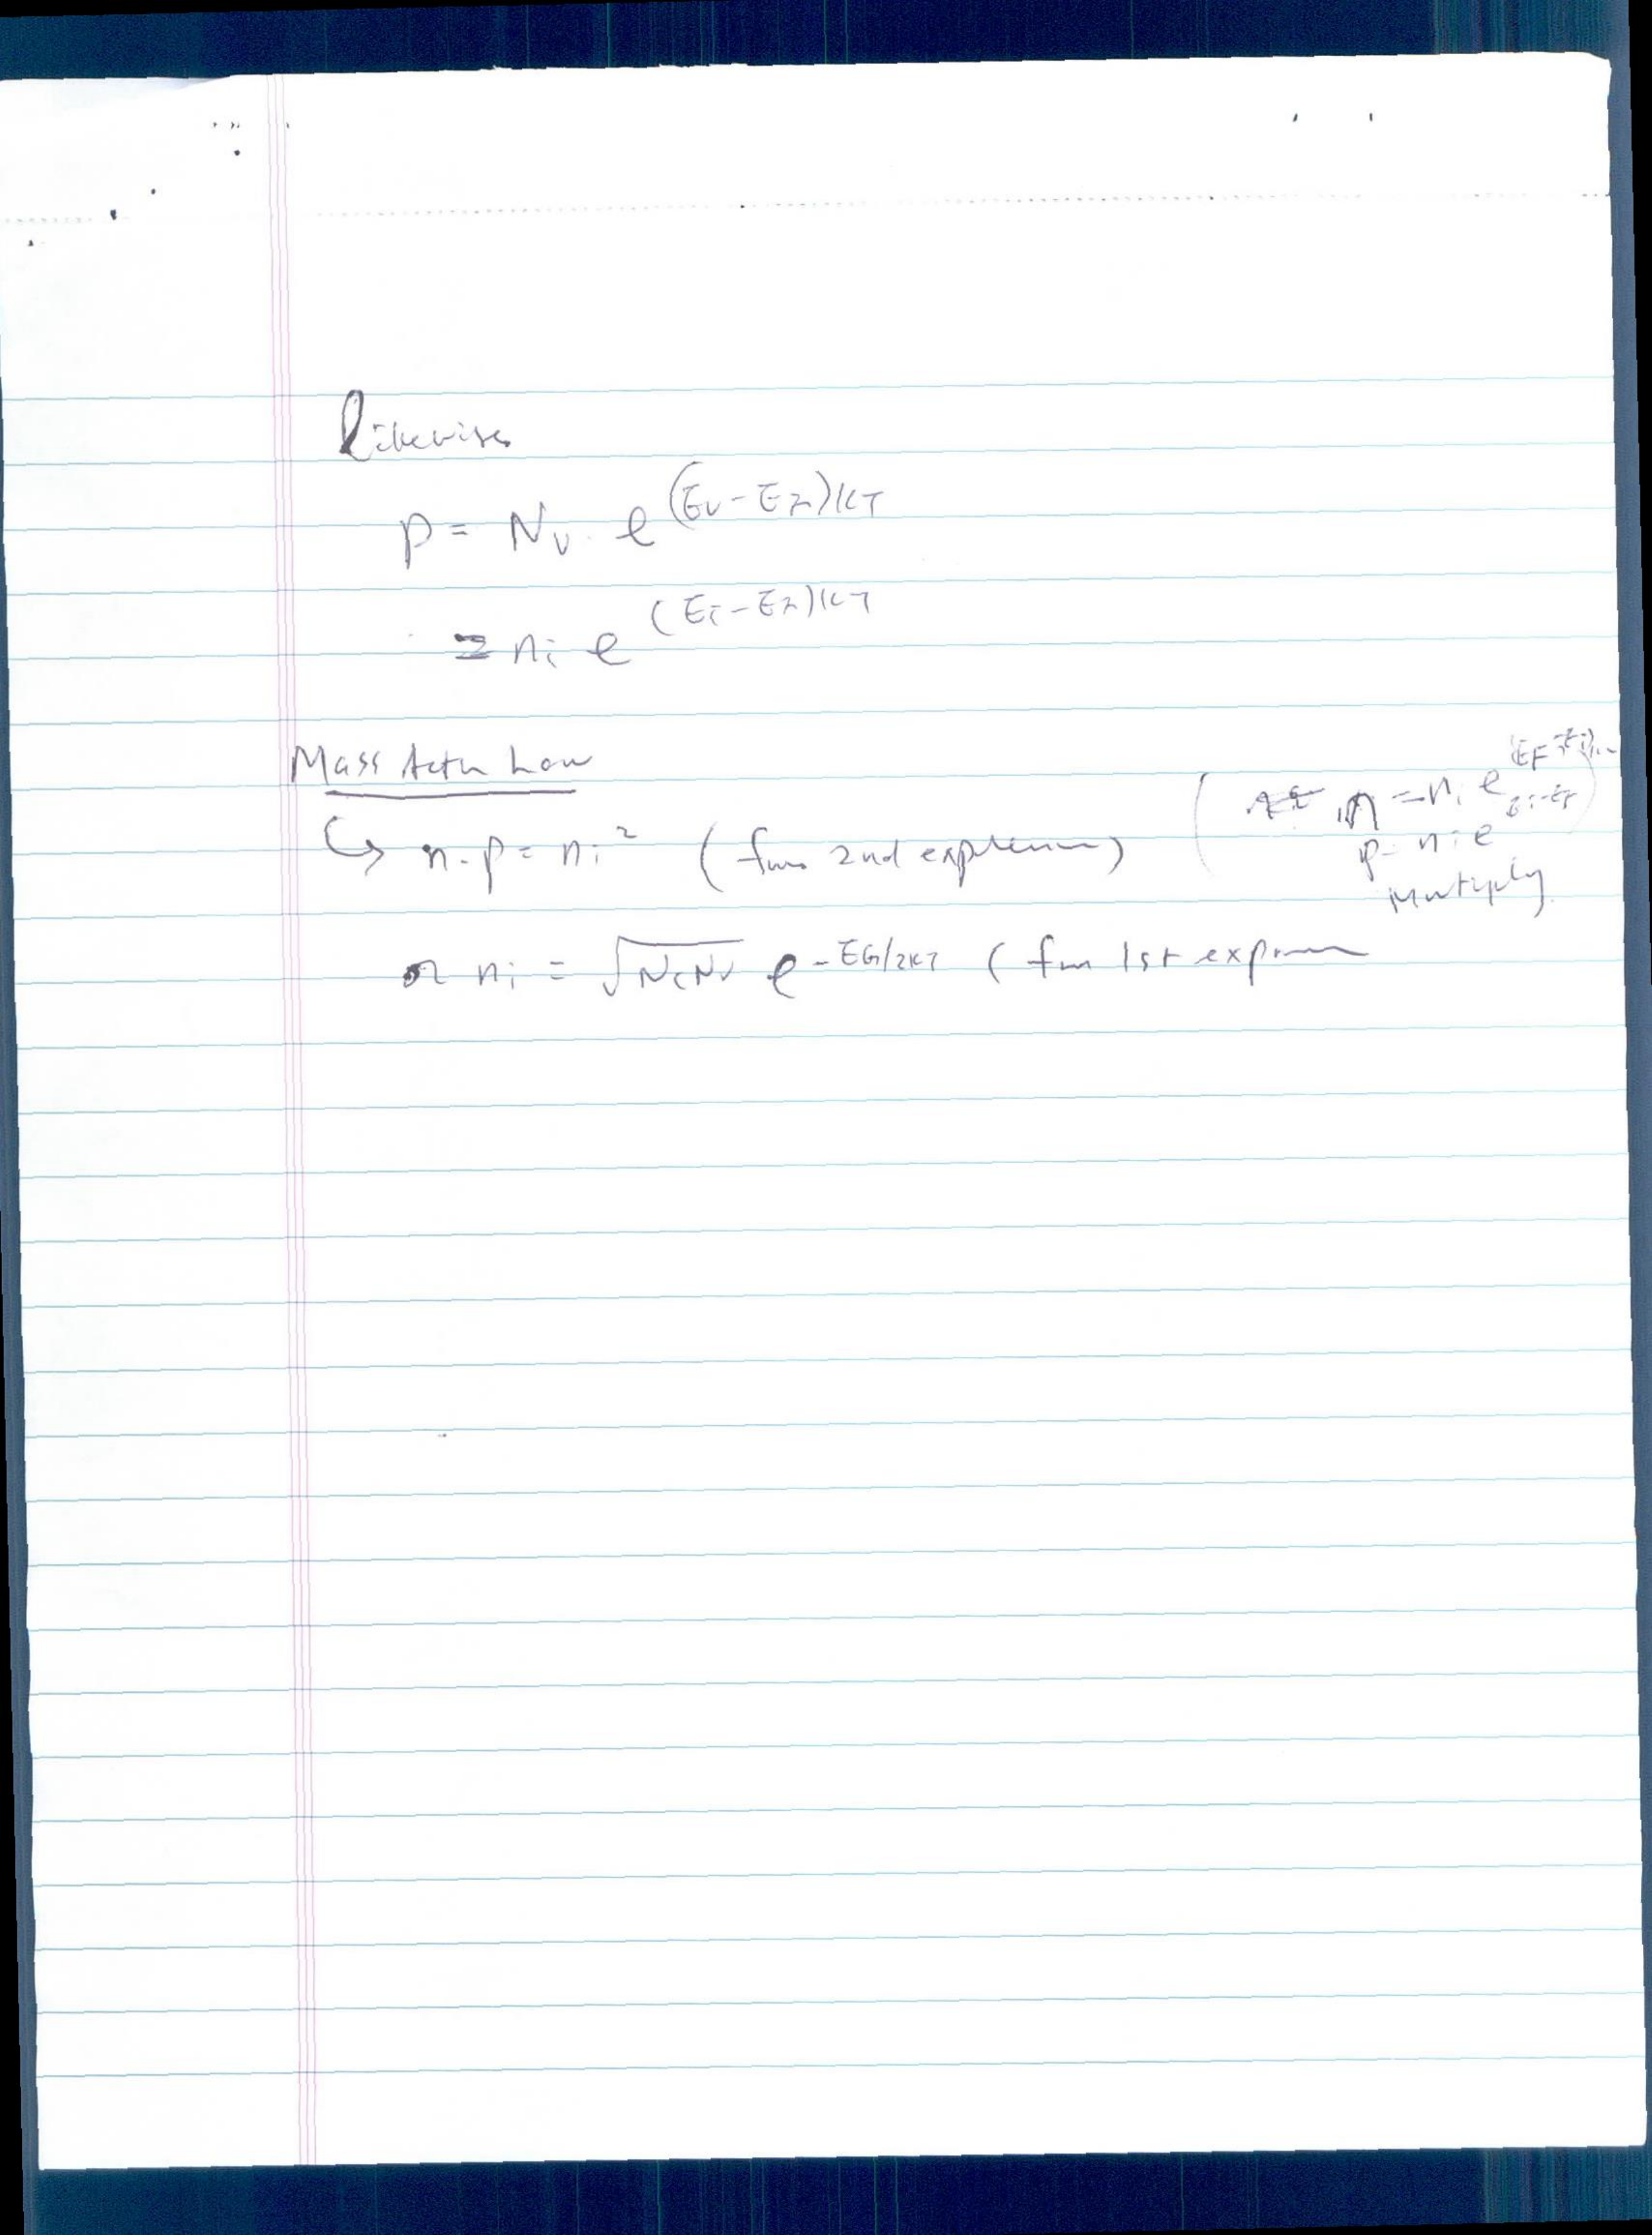 Likewise
p = Nv e^(Ev-EF)/KT
= ni e^(Ei-EF)/KT
Mass Actn Law
↳ n.p = ni² (from 2nd expression)
(n = ni e^(EF-Ei)
p = ni e^Ei-EF)
Multiply
or ni = √NcNv e^-EG/2KT (from 1st expression